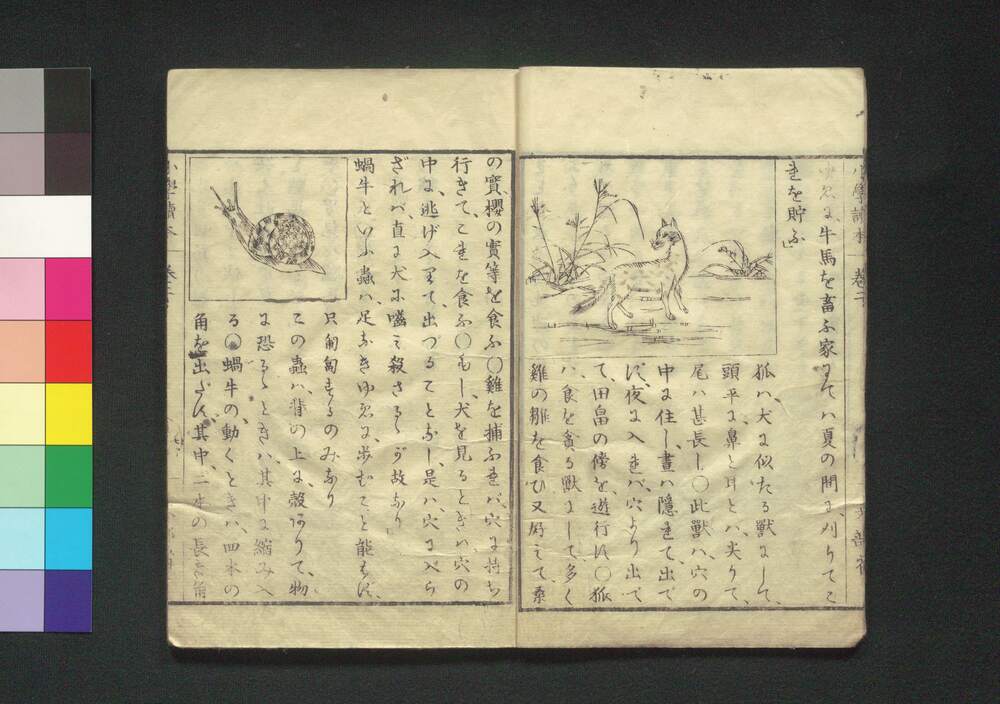 ゆゑに牛馬を畜ふ家にてハ夏の間に、刈りてこ
れを貯ふ」
狐ハ、犬に似たる獣にして、
頭平に、鼻と耳とハ、尖りて、
尾ハ甚長し、〇此獣ハ、穴の
中に住し、晝ハ、隱れて、出で
ず、夜に入れバ、穴より出で
て、田畠の傍を遊行す、〇狐
ハ、食を貪る獣にして、多く
雞の雛を食ひ又好みて、桑
の實、櫻の實等を食ふ、〇雞を捕ふれバ、穴に持ち
行きて、これを食ふ〇もし、犬を見るときハ穴の
中に、逃げ入りて、出づることなし、是ハ、穴に入ら
ざれバ、直に犬に嚙み殺さるゝが故なり
蝸牛といふ蟲ハ、足なきゆゑに、歩むこと能はず、
只匍匐するのみなり
この蟲ハ、背の上に、殻ありて、物
に恐るゝときハ、其中に縮み入
る〇蝸牛の、動くときハ、四本の
角を出だす、其中、二本の長き角
小學讀本 卷二